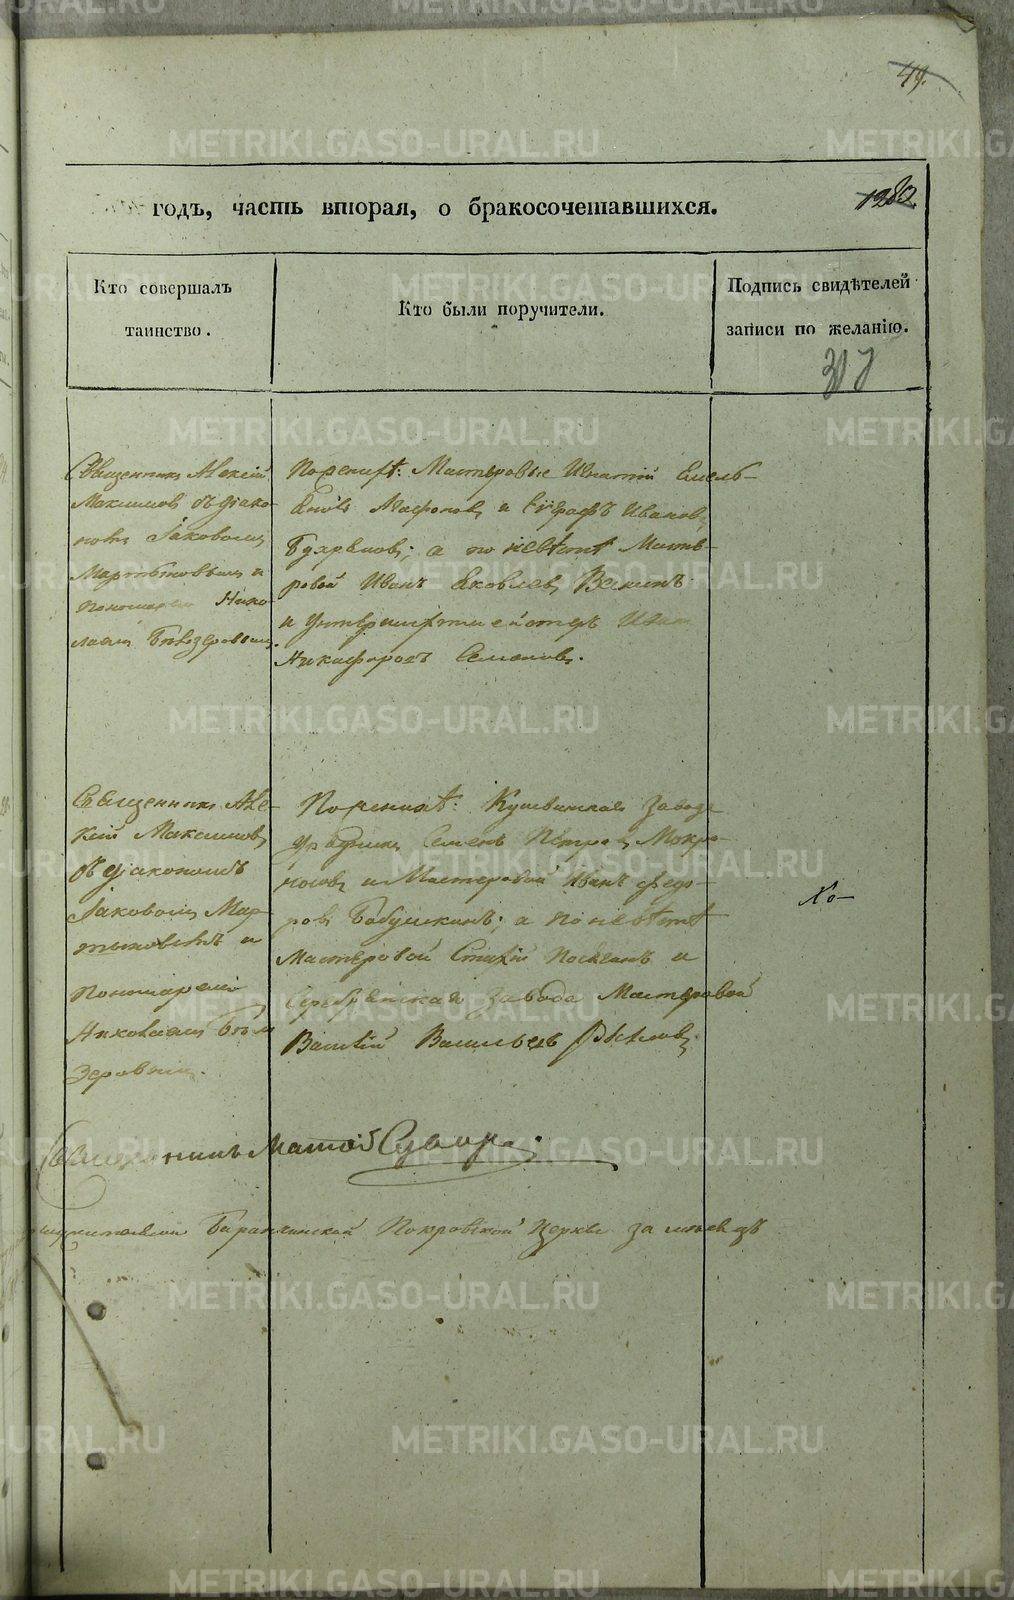 49.
годъ, часть вторая, о бракосочетавшихся.
Кто совершалъ
таинство.
Кто были поручители.
Подпись свидѣтелей
записи по желанію.
307
Священникъ Алексій
Максимов съ діако-
номъ Іаковомъ
Мартыновымъ и
пономаремъ Нико-
лаемъ Бѣлозеровымъ.
По женихѣ: Мастеровые Игнатій Емель-
Агафонов и Евграфъ Иванов
а по невѣстѣ Масте-
ровой Иванъ Яковлев
и унтершихтмейстеръ Иван
Никифоровъ Семенов.
Священникъ Але-
ксій Максимов
съ діакономъ
Іаковомъ Мар-
тыновымъ и
Пономаремъ
Николаемъ Бѣло
зеровымъ.
По женихѣ: Кушвинскаго завода
урядникъ Семенъ Петров Мокро-
носов и Мастеровой Иванъ Федо-
ров Бабушкинъ; а по невѣстѣ
мастеровой и
Серебрянскаго завода Мастеровой
Василій Васильевъ
Священникъ
Баранчинской Покровской Церкви
METRIKI.GASO-URAL.RU